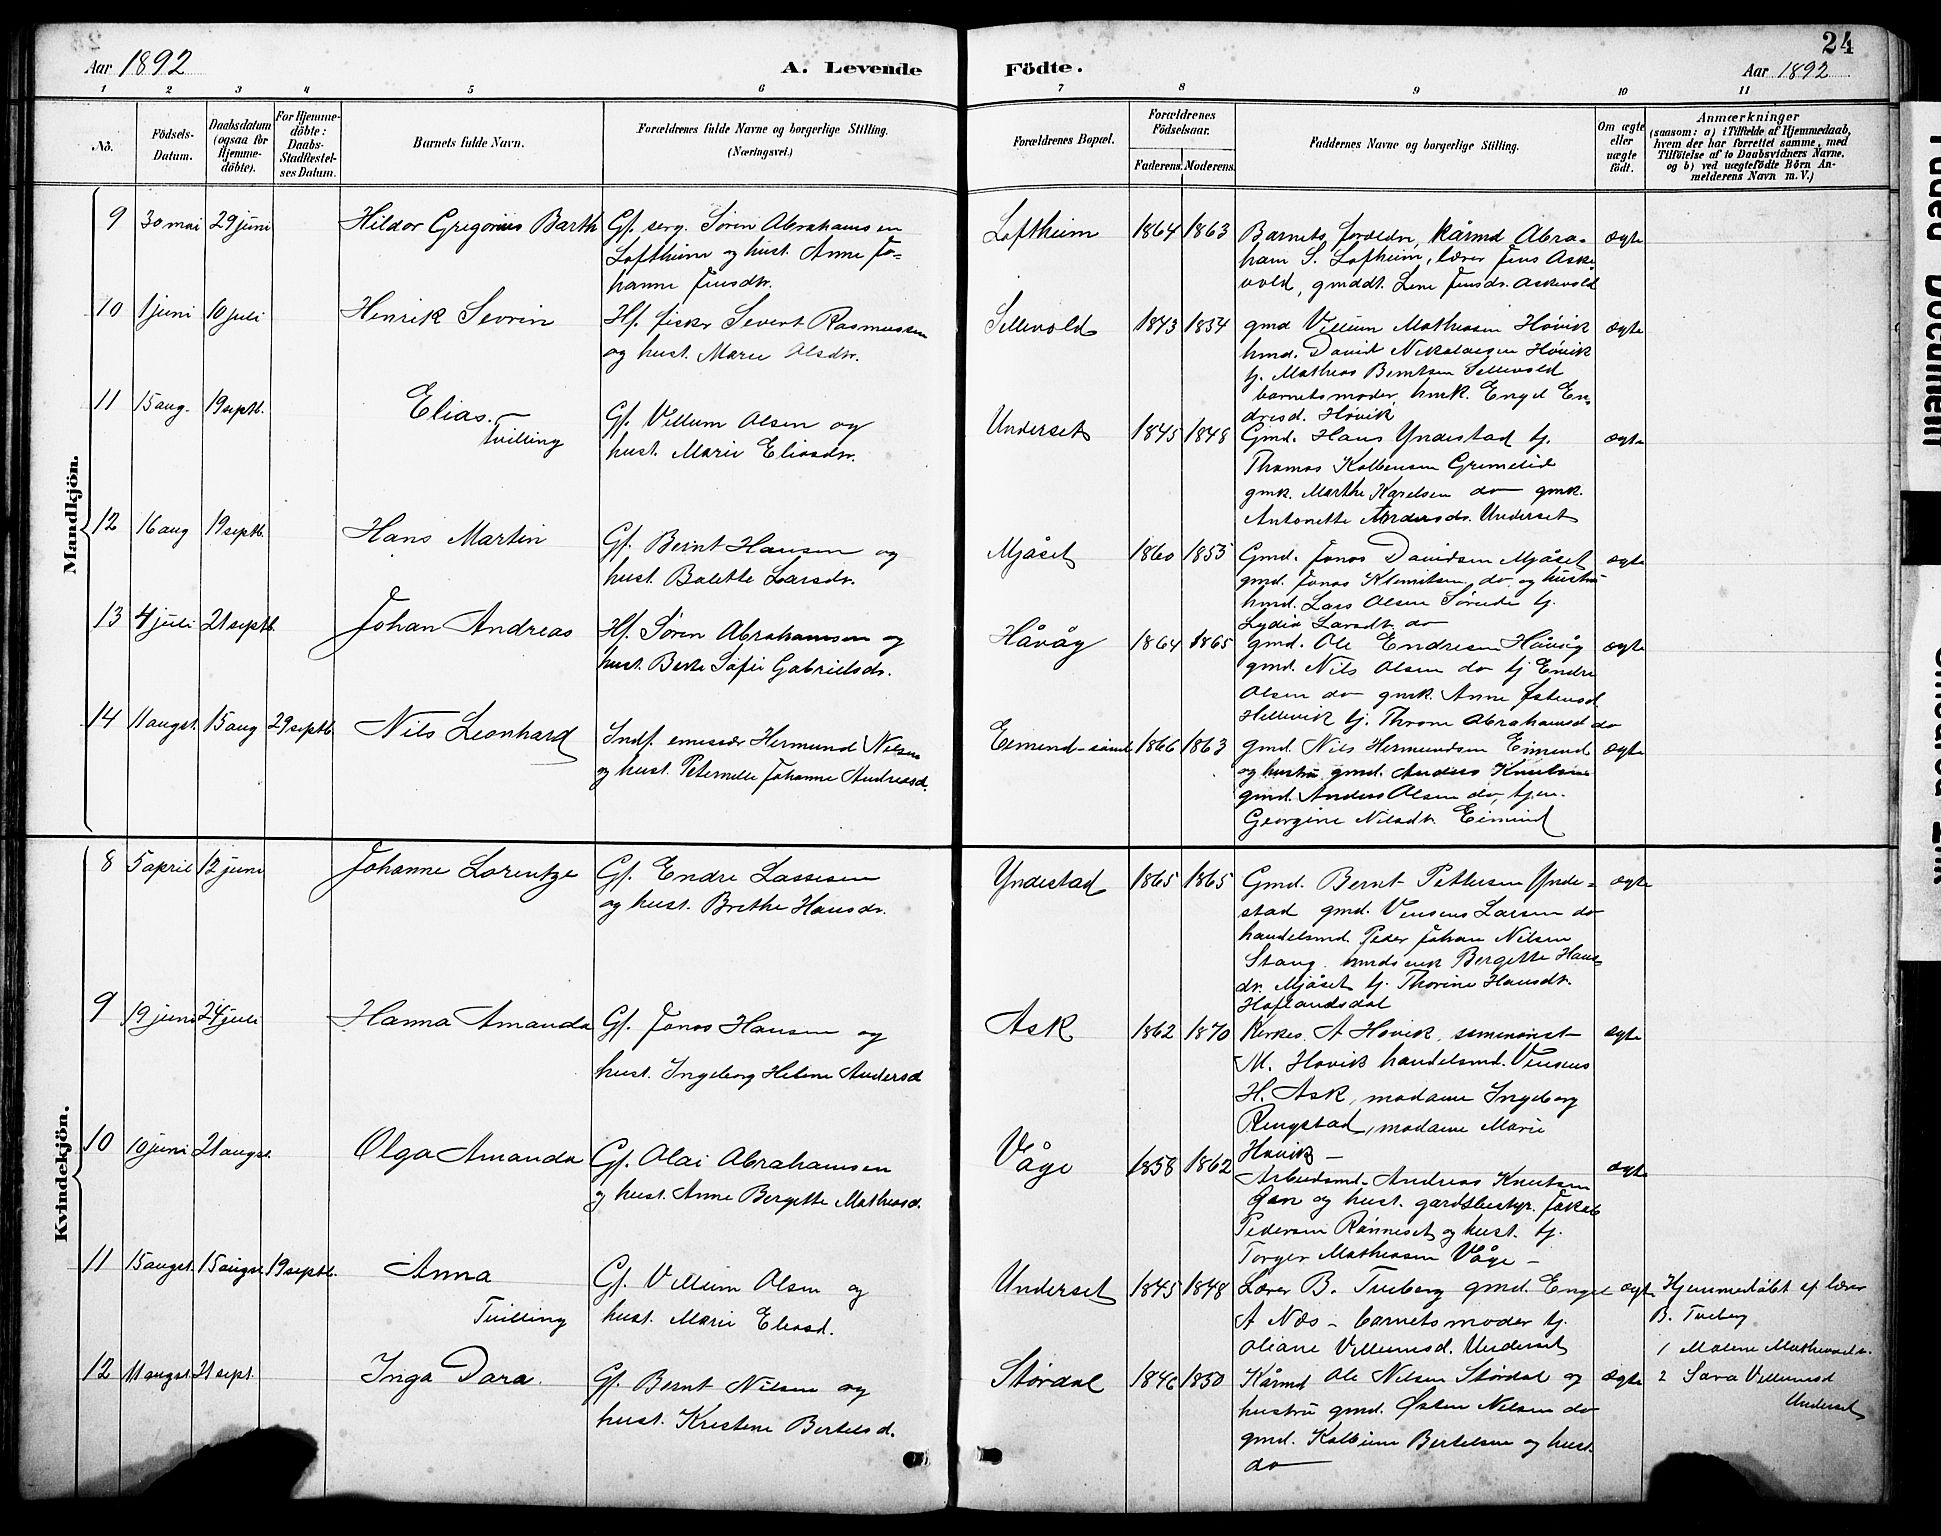 24
Aar 1892
A. Levende
Födte.
Aar 1892
1 2 3 4 5 6 7 8 9 10 11
No.
Födsels-
Datum.
Daabsdatum
(ogsaa for
Hjemme-
döbte).
For Hjemme-
döbte:
Daabs-
Stadfestel-
ses Datum.
Barnets fulde Navn.
Forældrenes fulde Navne og borgerlige Stilling.
(Næringsvei.)
Forældrenes Bopæl.
Forældrenes
Födselsaar.
Faderens. Moderens.
Faddernes Navne og borgerlige Stilling.
Om ægte
eller
uægte
födt.
Anmærkninger
(saasom: a) i Tilfælde af Hjemmedaab,
hvem der har forrettet samme, med
Tilföielse af to Daabsvidners Navne,
og b) ved uægtefödte Börn An-
melderens Navn m. V.)
Mandkjön.
9 30 mai 29 juni Hildor Gregorius Barth
Gf. serg. Søren Abrahamsen
Loftheim og hust. Anne Jo-
hanne Jensdtr.
Loftheim 1864 1863
Barnets foreldre, kårmd Abra-
ham S. Lofheim, lærer Jens Aske
vold, gmddt. Lene Jensdr. Askevold
ægte
10 1 juni 10 juli Henrik Sevrin
Hf. fisker Severt Rasmussen
og hust. Marie Olsdtr.
Sellevold 1843 1854
gmd Villum Mathiasen Høvik
hmd. David Nikolaisen Høvik
tj. Mathias Berntsen Sellevold
barnets moder, hmk. Engel En-
dresd. Høvik
ægte
11 15 aug. 19 septb. Elias. –
Tvilling
Gf. Villum Olsen og
hust. Marie Eliasdr.
Underset 1845 1848
Gmd. Hans Yndestad tj.
Thomas Kolbensen Grimelid
gmk. Marthe Karelsen do gmk.
Antonette Andersdr. Underset
ægte
12 16 aug 19 septb. Hans Martin
Gf. Bernt Hansen og
hust. Bolette Larsdr.
Mjåset 1860 1853
Gmd. Jonas Davidsen Mjåset
gmd. Jonas Klemitsen do og hustru
hmd. Lars Olsen Sørude tj.
Lydia Larsdt. do
ægte
13 4 juli 21 septb. Johan Andreas
Hf. Søren Abrahamsen og
hust. Berte Sofie Gabrielsdr.
Håvåg 1864 1865
gmd. Ole Endresen Håvåg
gmd. Nils Olsen do tj Endre
Olsen do gmk. Anne Østensd
Hellevik tj. Throne Abrahamsd do
ægte
14 11 augst. 15 aug 29 septb. Nils Leonhard
Indf. emissær Hermund Nilsen
og hust. Peternille Johanne Andreasd.
Eimind-sand 1866 1863
gmd. Nils Hermundsen Eimind
og hustru gmd. Anders Knutsen
gmd. Anders Olsen do, tjen.
Georgine Nilsdt. Eimind
ægte
Kvindekjön.
8 5 april 12 juni Johanne Lorentze
Gf. Endre Lassesen
og hust. Brethe Hansdr.
Yndestad 1865 1865
Gmd. Bernt Pettersen Ynde-
stad gmd. Vensens Larsen do
handelsmd. Peder Johan Nilsen
Stang Bergette Hans-
dr. Mjåset tj. Thorine Hansdt.
Hoflandsdal
ægte
9 19 juni 24 juli Hanna Amanda
Gf. Jonas Hansen og
hust. Ingeborg Helene Andersd
Ask 1862 1870
Kirkes. A Høvik, seminarist
M. Høvik handelsmd. Vensens
H. Ask, madame Ingeborg
Ringstad, madame Marie
Høvik –
ægte
10 10 juni 21 augst. Olga Amanda
Gf. Olai Abrahamsen
og hust. Anne Bergette Mathiasd.
Våge 1858 1862
Arbeidsmd. Andreas Knutsen
og hust. gardsbestyr. Jakob
Pedersen Rånneset og hust. tj.
Torger Mathiassen Våge –
ægte
11 15 augst. 15 augst 19 septb. Anna
Tvilling
Gf. Villum Olsen og
hust. Marie Eliasd.
Underset 1845 1848
Lærer B. Tveberg gmd. Engel
A Næs – barnets moder tj.
Oliane Villumsd. Underset
ægt
Hjemmedøbt af lærer
B. Tveberg
1 Malene Mathiasdr.
2 Sara Villumsd
Underset
12 11 augst. 21 sept. Inga Dara.
Gf. Bernt Nilsen og
hust. Kristine Bertelsd.
Stordal 1846 1850
Kårmd Ole Nilsen Størdal og
hustru gmd. Østen Nilsen do
gmd. Kolbein Bertelsen og hust.
do
ægte